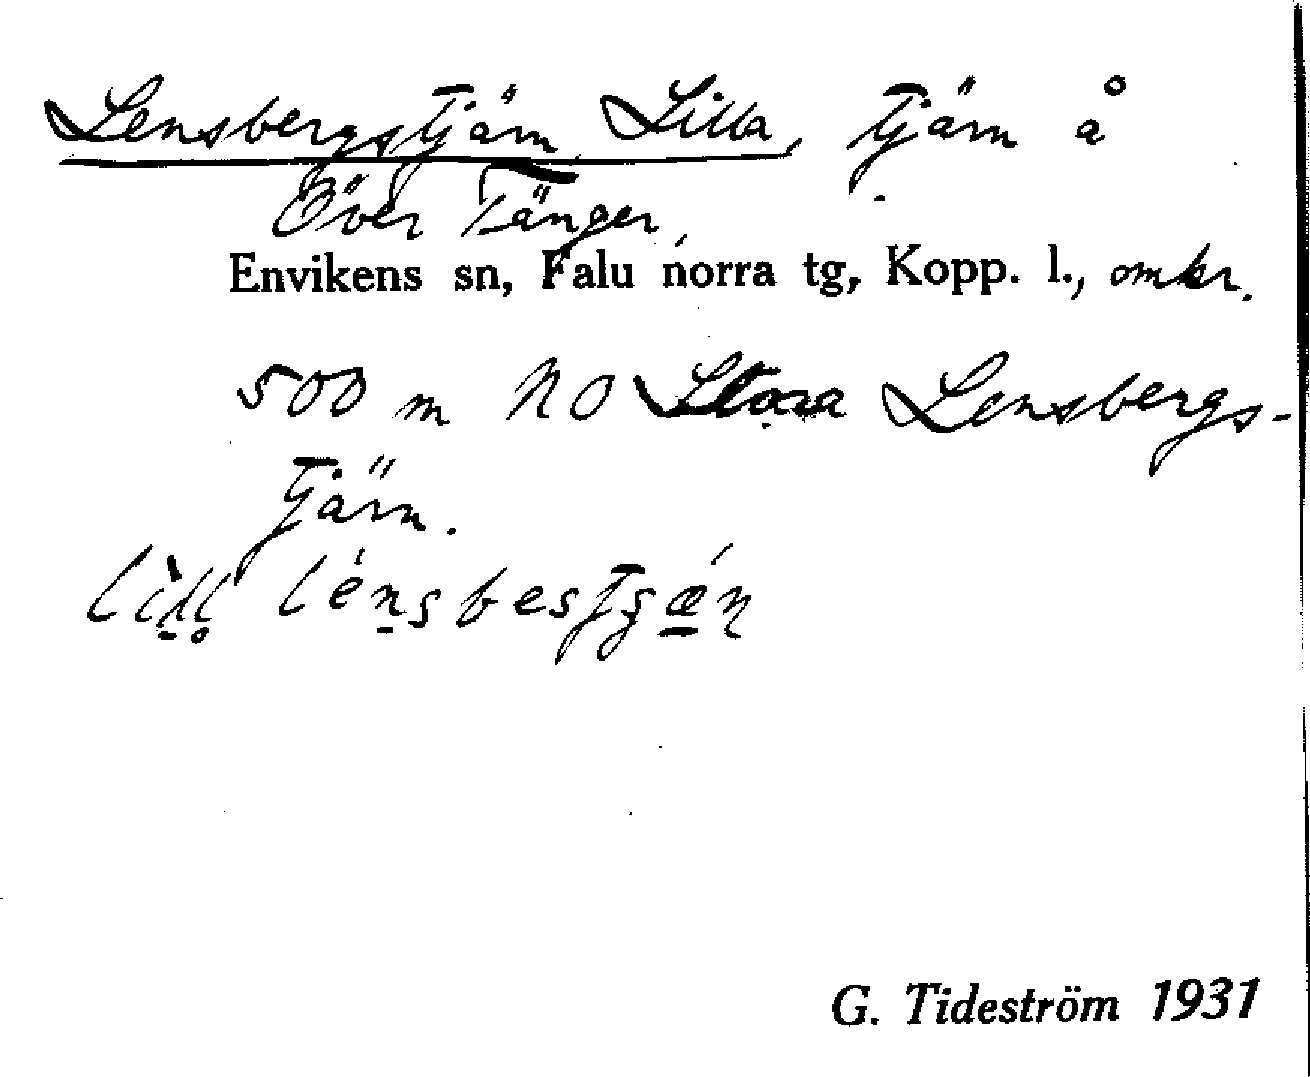 Lensbergstjärn, Lilla, tjärn å
Över Tänger,
Envikens sn, Falu norra tg, Kopp. l., omkr.
500 m NO Stora Lensbergs-
tjärn.
G. Tideström 1931